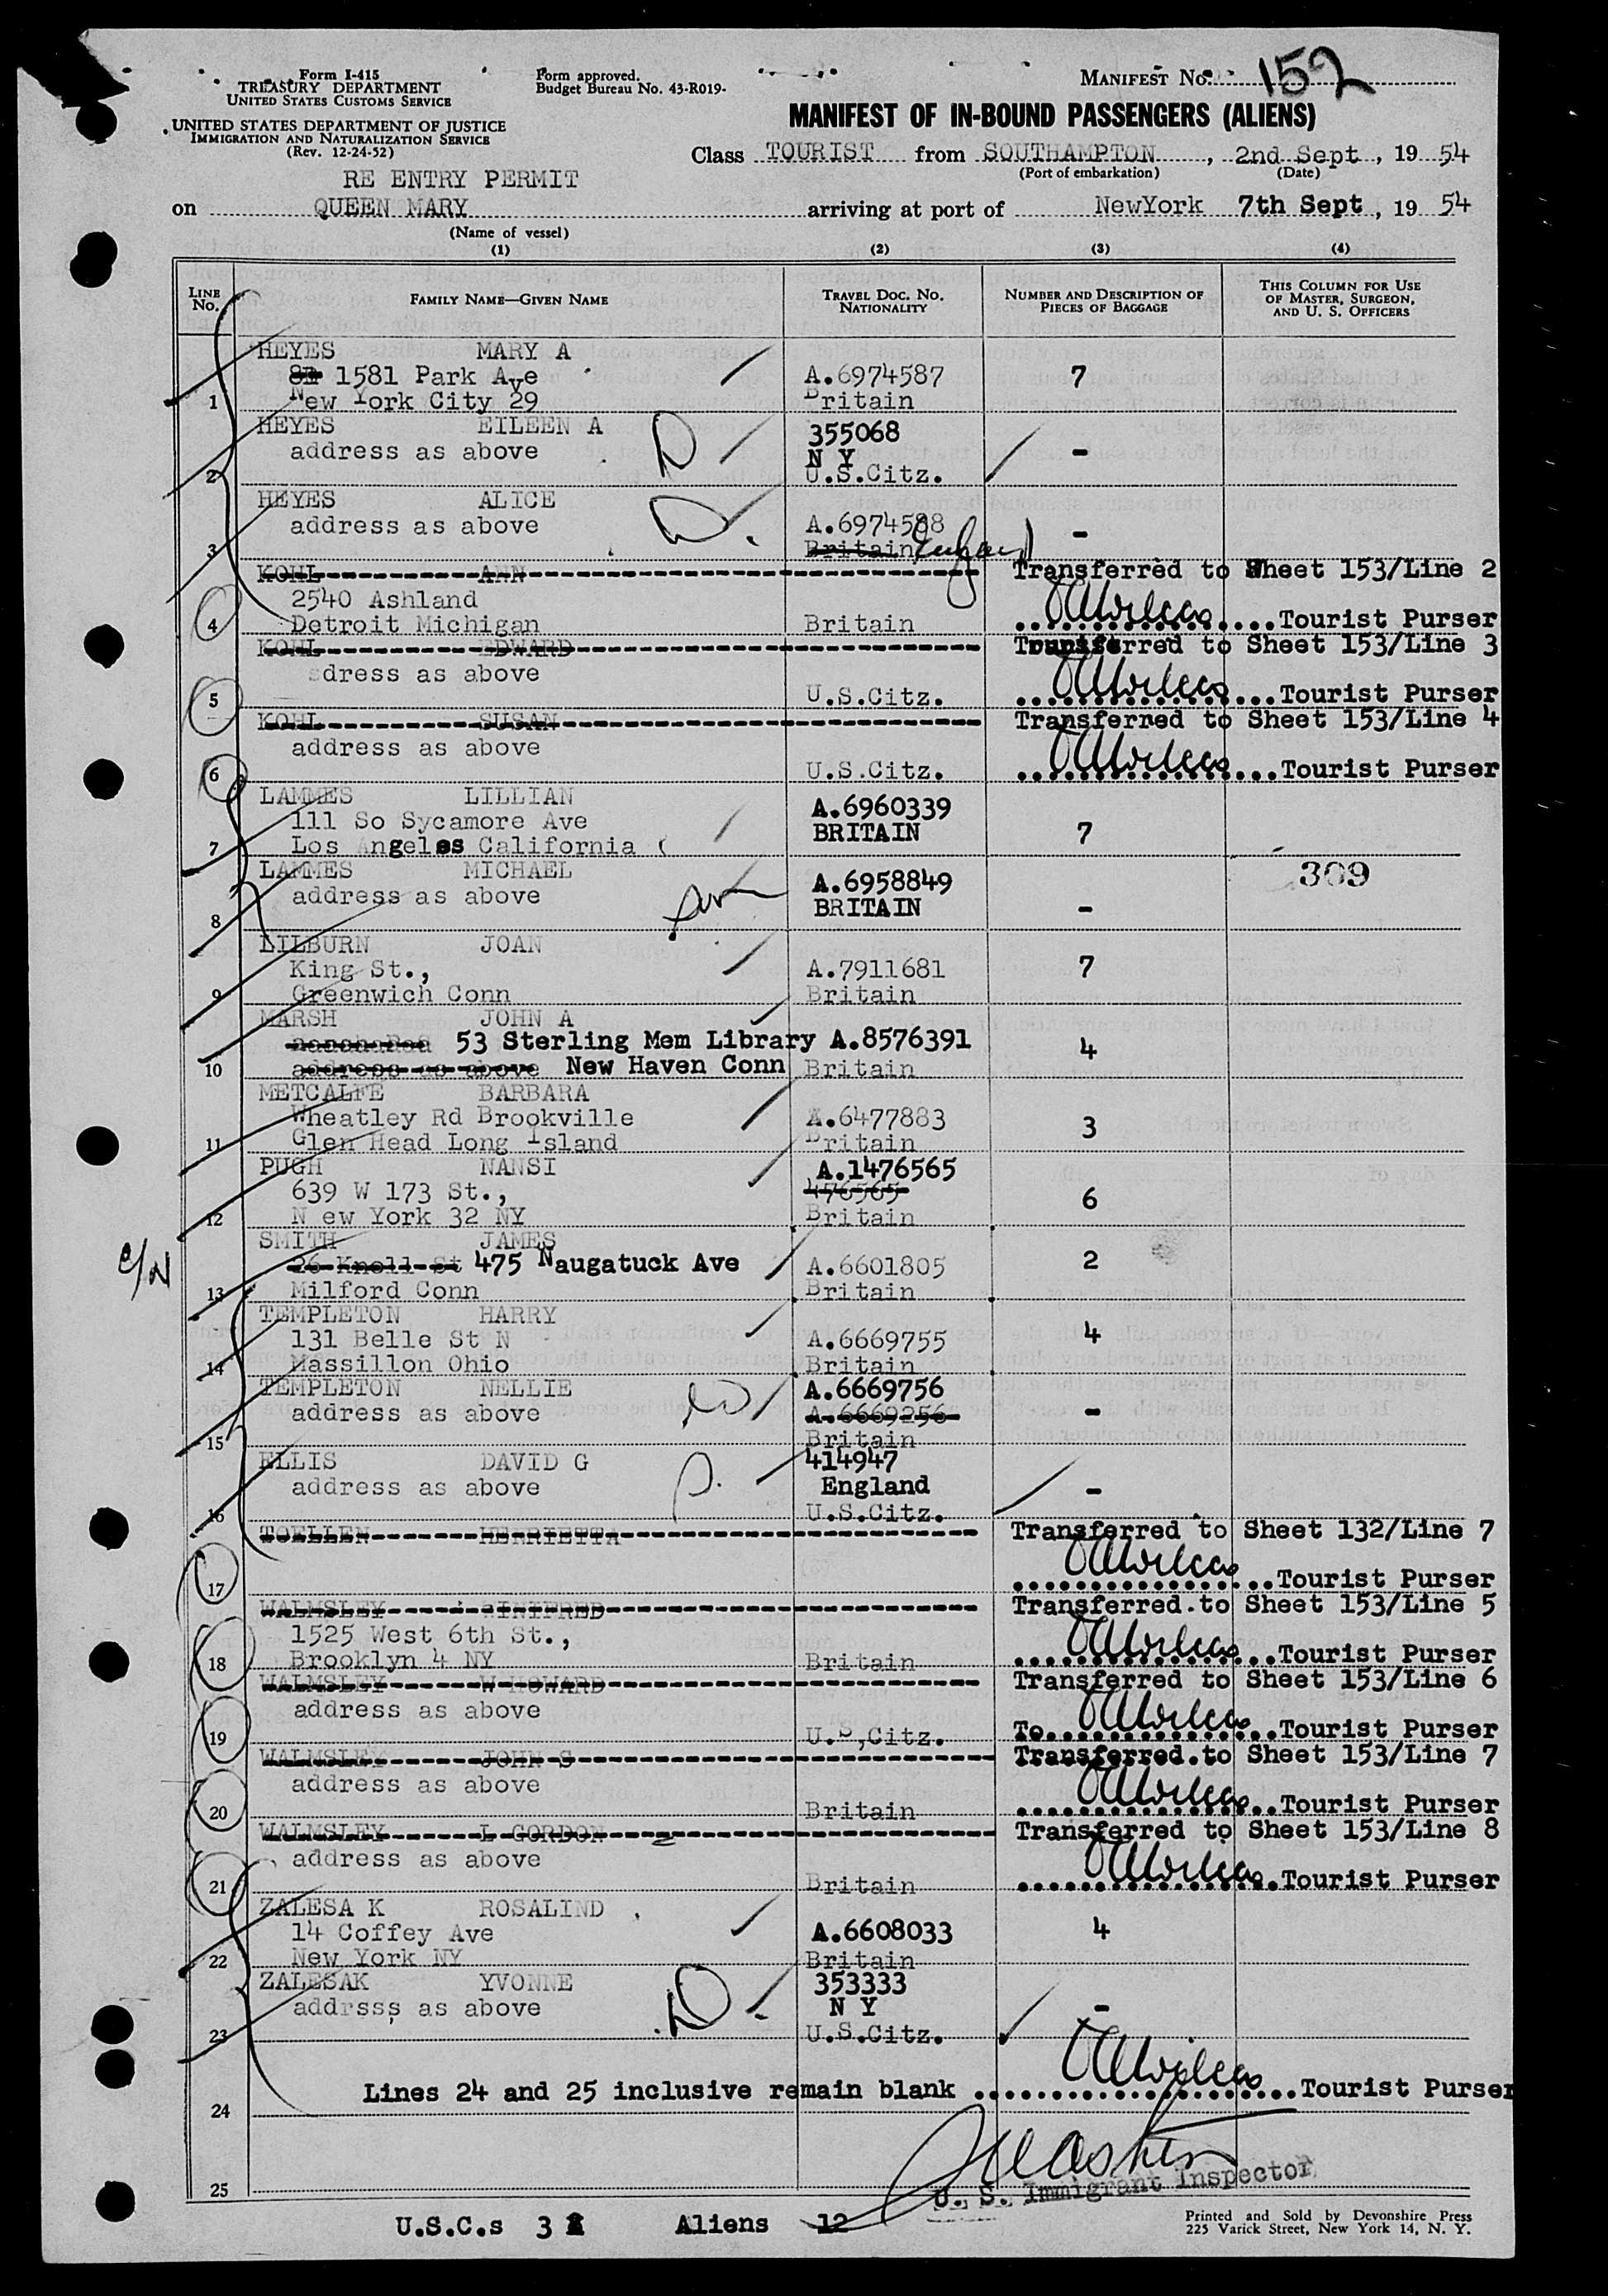 Form I-415
TREASURY DEPARTMENT
UNITED STATES CUSTOMS SERVICE
UNITED STATES DEPARTMENT OF JUSTICE
IMMIGRATION AND NATURALIZATION SERVICE
(Rev. 12-24-52)
Form approved.
Budget Bureau No. 43-R019-
MANIFEST No. 152
MANIFEST OF IN-BOUND PASSENGERS (ALIENS)
Class TOURIST from SOUTHAMPTON, 2nd Sept, 19 54
(Port of embarkation) (Date)
RE ENTRY PERMIT
on QUEEN MARY arriving at port of NewYork 7th Sept, 19 54
(Name of vessel)
(1) (2) (3) (4)
LINE No. FAMILY NAME—GIVEN NAME TRAVEL DOC. NO. NATIONALITY NUMBER AND DESCRIPTION OF PIECES OF BAGGAGE THIS COLUMN FOR USE OF MASTER, SURGEON, AND U. S. OFFICERS
HEYES MARY A
1581 Park Ave A.6974587 7
1 New York City 29 Britain
HEYES EILEEN A 355068
address as above D N Y -
2 U.S.Citz.
HEYES ALICE
address as above D. A.6974588 -
3 Britain England
KOHL ANN Transferred to Sheet 153/Line 2
2540 Ashland
4 Detroit Michigan Britain Tourist Purser
KOHL EDWARD Transferred to Sheet 153/Line 3
dress as above
5 U.S.Citz. Tourist Purser
KOHL SUSAN Transferred to Sheet 153/Line 4
address as above
6 U.S.Citz. Tourist Purser
LAMMES LILLIAN A.6960339
111 So Sycamore Ave BRITAIN 7
7 Los Angeles California (
LAMMES MICHAEL A.6958849 309
address as above BRITAIN -
8
LILBURN JOAN
King St., A.7911681 7
9 Greenwich Conn Britain
MARSH JOHN A
53 Sterling Mem Library A.8576391 4
10 address as above New Haven Conn Britain
METCALFE BARBARA
Wheatley Rd Brookville A.6477883 3
11 Glen Head Long Island Britain
PUGH NANSI A.1476565
639 W 173 St., 476565 6
12 N ew York 32 NY Britain
SMITH JAMES
c/N 26 Knoll St 475 Naugatuck Ave A.6601805 2
13 Milford Conn Britain
TEMPLETON HARRY
131 Belle St N A.6669755 4
14 Massillon Ohio Britain
TEMPLETON NELLIE A.6669756
address as above W A.6669256 -
15 Britain
ELLIS DAVID G 414947
address as above England -
16 U.S.Citz.
TOELLEN HENRIETTA Transferred to Sheet 132/Line 7
17 Tourist Purser
WALMSLEY WINIFRED Transferred.to Sheet 153/Line 5
1525 West 6th St.,
18 Brooklyn 4 NY Britain Tourist Purser
WALMSLEY W HOWARD Transferred to Sheet 153/Line 6
address as above
19 U.S,Citz. To Tourist Purser
WALMSLEY JOHN S Transferred.to Sheet 153/Line 7
address as above
20 Britain Tourist Purser
WALMSLEY L GORDON Transferred to Sheet 153/Line 8
address as above
21 Britain Tourist Purser
ZALESA K ROSALIND
14 Coffey Ave A.6608033 4
22 New York NY Britain
ZALESAK YVONNE 353333
addrsss as above D. N Y -
23 U.S.Citz.
Lines 24 and 25 inclusive remain blank Tourist Purser
24
25 U. S. Immigrant Inspector
U.S.C.s 3 Aliens 12
Printed and Sold by Devonshire Press
225 Varick Street, New York 14, N. Y.